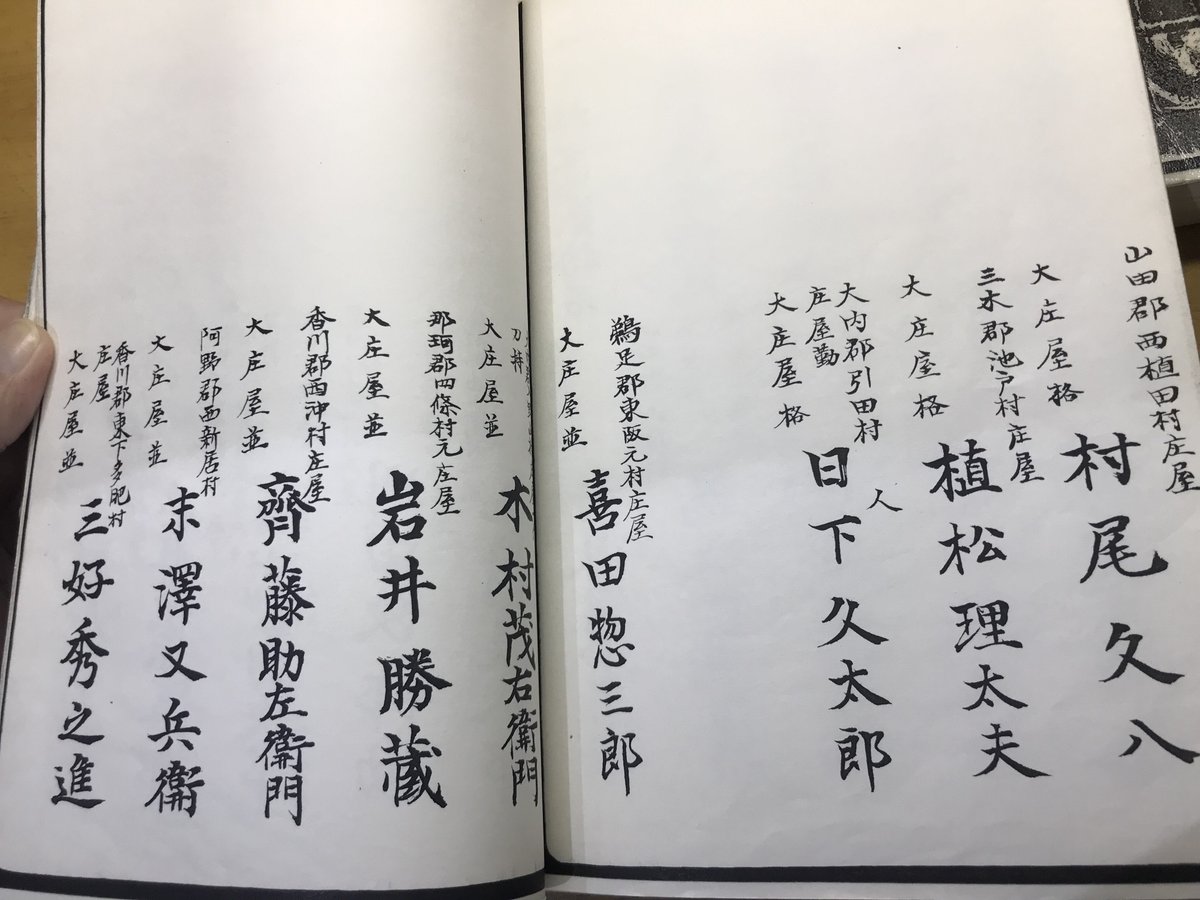 山田郡西植田村庄屋
村尾久八
大庄屋格
三木郡池戸村庄屋
植松理太夫
大庄屋格
人
大内郡引田村
庄屋勤
日下久太郎
大庄屋格
鵜足郡東阪元村庄屋
喜田惣三郎
大庄屋並
刀持
木村茂右衞門
大庄屋並
那珂郡四條村元庄屋
岩井勝蔵
大庄屋並
香川郡西沖村庄屋
齊藤助左衞門
大庄屋並
阿野郡西新居村
末澤又兵衞
大庄屋並
香川郡東下多肥村
庄屋
三好秀之進
大庄屋並